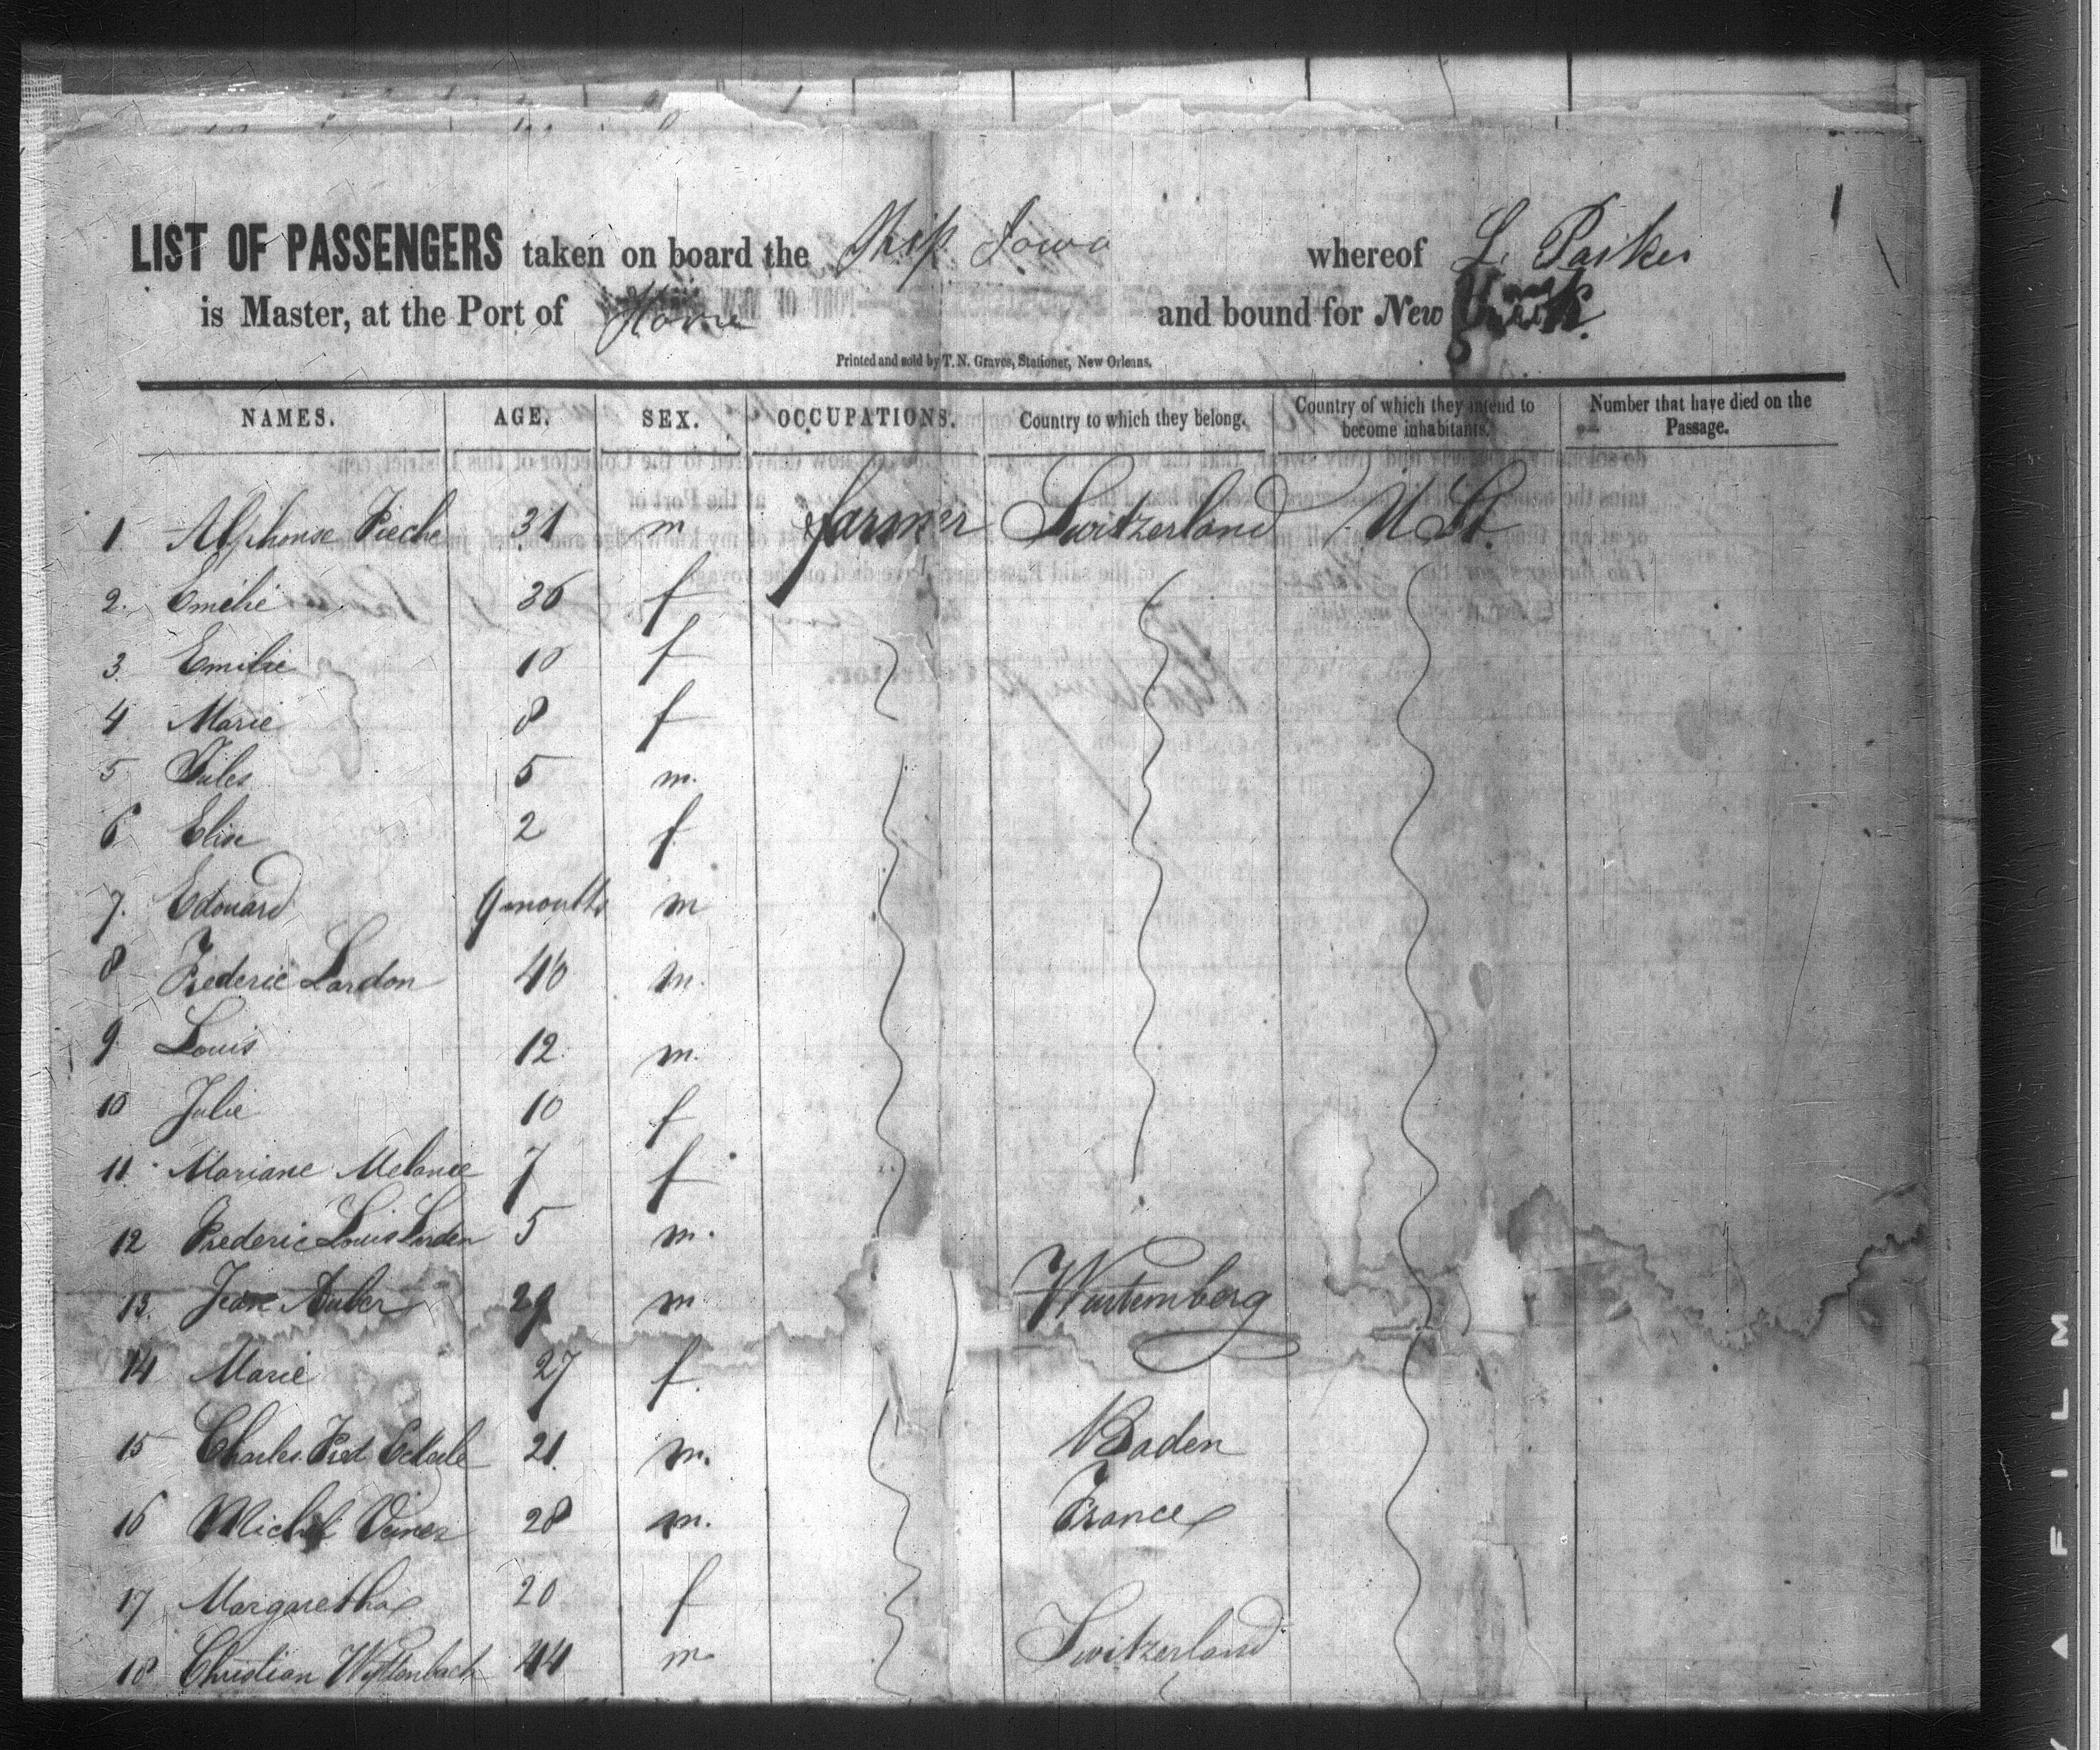 1
LIST OF PASSENGERS taken on board the Ship Iowa whereof L. Parker
is Master, at the Port of Havre and bound for New York
Printed and sold by T. N. Graves, Stationer, New Orleans.
NAMES. AGE. SEX. OCCUPATIONS. Country to which they belong. Country of which they intend to become inhabitants. Number that have died on the Passage.
1 Alphonse Pieche 31 m farmer Switzerland U St.
2. Emelie 36 f
3 Emilie 10 f
4 Marie 8 f
5 Jules 5 m.
6 Elise 2 f
7. Edouard 9 months m
8 Frederic Lardon 40 m.
9 Louis 12 m.
10 Julie 10 f
11 Mariane Melanie 7 f
12 Frederic Louis Lardon 5 m.
13. Jean 29 m Wurtemberg
14 Marie 27 f.
15 Charles Fred Eckerle 21 m. Baden
16 Michel 28 m. France
17 Margaretha 20 f
18 Christian Wyttenbach 44 m Switzerland
A FILM